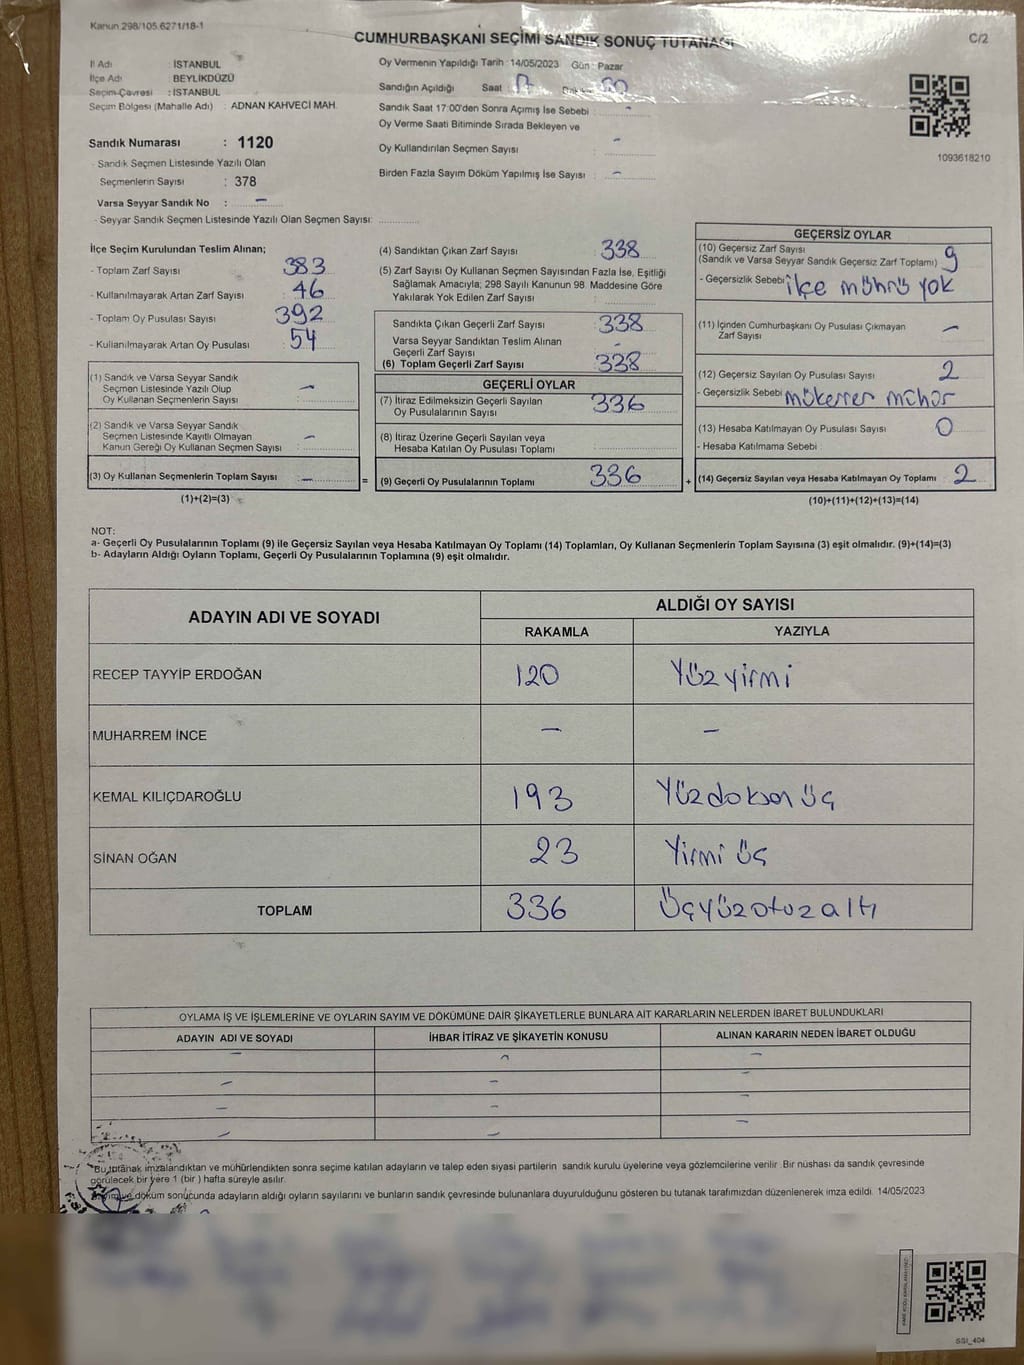 Kanun 298/105.6271/18-1
CUMHURBAŞKANI SEÇİMİ SANDIK SONUÇ TUTANAĞI
C/2
İl Adı : İSTANBUL
İlçe Adı : BEYLİKDÜZÜ
Seçim Çevresi : İSTANBUL
Seçim Bölgesi (Mahalle Adı) : ADNAN KAHVECİ MAH.
Oy Vermenin Yapıldığı Tarih : 14/05/2023 Gün : Pazar
Sandığın Açıldığı Saat : 17
Sandık Saat 17:00'den Sonra Açılmış İse Sebebi : -
Oy Verme Saati Bitiminde Sırada Bekleyen ve
Oy Kullandırılan Seçmen Sayısı : -
Birden Fazla Sayım Döküm Yapılmış İse Sayısı : -
1093618210
Sandık Numarası : 1120
- Sandık Seçmen Listesinde Yazılı Olan
Seçmenlerin Sayısı : 378
Varsa Seyyar Sandık No : -
- Seyyar Sandık Seçmen Listesinde Yazılı Olan Seçmen Sayısı:
İlçe Seçim Kurulundan Teslim Alınan;
- Toplam Zarf Sayısı : 383
- Kullanılmayarak Artan Zarf Sayısı : 46
- Toplam Oy Pusulası Sayısı : 392
- Kullanılmayarak Artan Oy Pusulası : 54
(1) Sandık ve Varsa Seyyar Sandık
Seçmen Listesinde Yazılı Olup
Oy Kullanan Seçmenlerin Sayısı : -
(2) Sandık ve Varsa Seyyar Sandık
Seçmen Listesinde Kayıtlı Olmayan
Kanun Gereği Oy Kullanan Seçmen Sayısı : -
(3) Oy Kullanan Seçmenlerin Toplam Sayısı : -
(1)+(2)=(3)
=
(4) Sandıktan Çıkan Zarf Sayısı : 338
(5) Zarf Sayısı Oy Kullanan Seçmen Sayısından Fazla İse, Eşitliği
Sağlamak Amacıyla; 298 Sayılı Kanunun 98. Maddesine Göre
Yakılarak Yok Edilen Zarf Sayısı :
Sandıkta Çıkan Geçerli Zarf Sayısı : 338
Varsa Seyyar Sandıktan Teslim Alınan
Geçerli Zarf Sayısı : -
(6) Toplam Geçerli Zarf Sayısı : 338
GEÇERLİ OYLAR
(7) İtiraz Edilmeksizin Geçerli Sayılan
Oy Pusulalarının Sayısı : 336
(8) İtiraz Üzerine Geçerli Sayılan veya
Hesaba Katılan Oy Pusulası Toplamı :
(9) Geçerli Oy Pusulalarının Toplamı : 336
+
GEÇERSİZ OYLAR
(10) Geçersiz Zarf Sayısı
(Sandık ve Varsa Seyyar Sandık Geçersiz Zarf Toplamı) : 9
- Geçersizlik Sebebi : ilçe mührü yok
(11) İçinden Cumhurbaşkanı Oy Pusulası Çıkmayan
Zarf Sayısı : -
(12) Geçersiz Sayılan Oy Pusulası Sayısı : 2
- Geçersizlik Sebebi : mükerrer mühür
(13) Hesaba Katılmayan Oy Pusulası Sayısı : 0
- Hesaba Katılmama Sebebi :
(14) Geçersiz Sayılan veya Hesaba Katılmayan Oy Toplamı : 2
(10)+(11)+(12)+(13)=(14)
NOT:
a- Geçerli Oy Pusulalarının Toplamı (9) ile Geçersiz Sayılan veya Hesaba Katılmayan Oy Toplamı (14) Toplamları, Oy Kullanan Seçmenlerin Toplam Sayısına (3) eşit olmalıdır. (9)+(14)=(3)
b- Adayların Aldığı Oyların Toplamı, Geçerli Oy Pusulalarının Toplamına (9) eşit olmalıdır.
ADAYIN ADI VE SOYADI
ALDIĞI OY SAYISI
RAKAMLA YAZIYLA
RECEP TAYYİP ERDOĞAN 120 Yüz yirmi
MUHARREM İNCE - -
KEMAL KILIÇDAROĞLU 193 Yüzdoksan üç
SİNAN OĞAN 23 Yirmi üç
TOPLAM 336 Üçyüzotuzaltı
OYLAMA İŞ VE İŞLEMLERİNE VE OYLARIN SAYIM VE DÖKÜMÜNE DAİR ŞİKAYETLERLE BUNLARA AİT KARARLARIN NELERDEN İBARET BULUNDUKLARI
ADAYIN ADI VE SOYADI İHBAR İTİRAZ VE ŞİKAYETİN KONUSU ALINAN KARARIN NEDEN İBARET OLDUĞU
- - -
- - -
- - -
- - -
Bu tutanak imzalandıktan ve mühürlendikten sonra seçime katılan adayların ve talep eden siyasi partilerin sandık kurulu üyelerine veya gözlemcilerine verilir. Bir nüshası da sandık çevresinde
görülecek bir yere 1 (bir) hafta süreyle asılır.
Sayım ve döküm sonucunda adayların aldığı oyların sayılarını ve bunların sandık çevresinde bulunanlara duyurulduğunu gösteren bu tutanak tarafımızdan düzenlenerek imza edildi. 14/05/2023
SGI_404